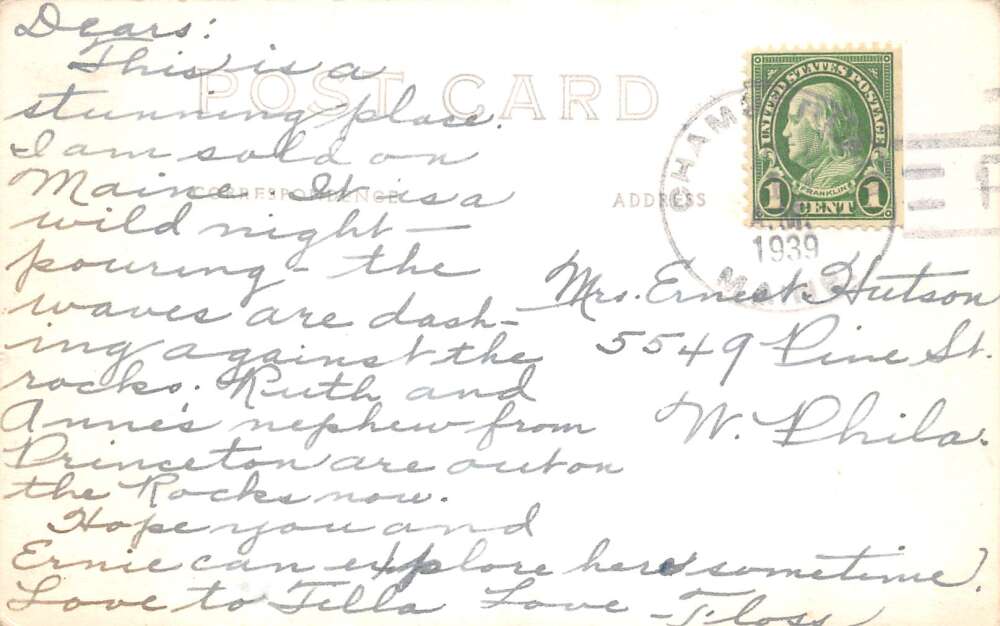 Dears:
This is a
stunning place.
I am sold on
Maine. It is a
wild night —
pouring - the
waves are dash-
ing against the
rocks. Ruth and
Anne's nephew from
Princeton are out on
the Rocks now.
Hope you and
Ernie can explore here sometime.
Love to Tilla Love - Floss
POST CARD
CORRESPONDENCE
ADDRESS
UNITED STATES POSTAGE
FRANKLIN
1 CENT 1
A.M.
1939
MAINE
Mrs. Ernest Hutson
5549 Pine St.
W. Phila.